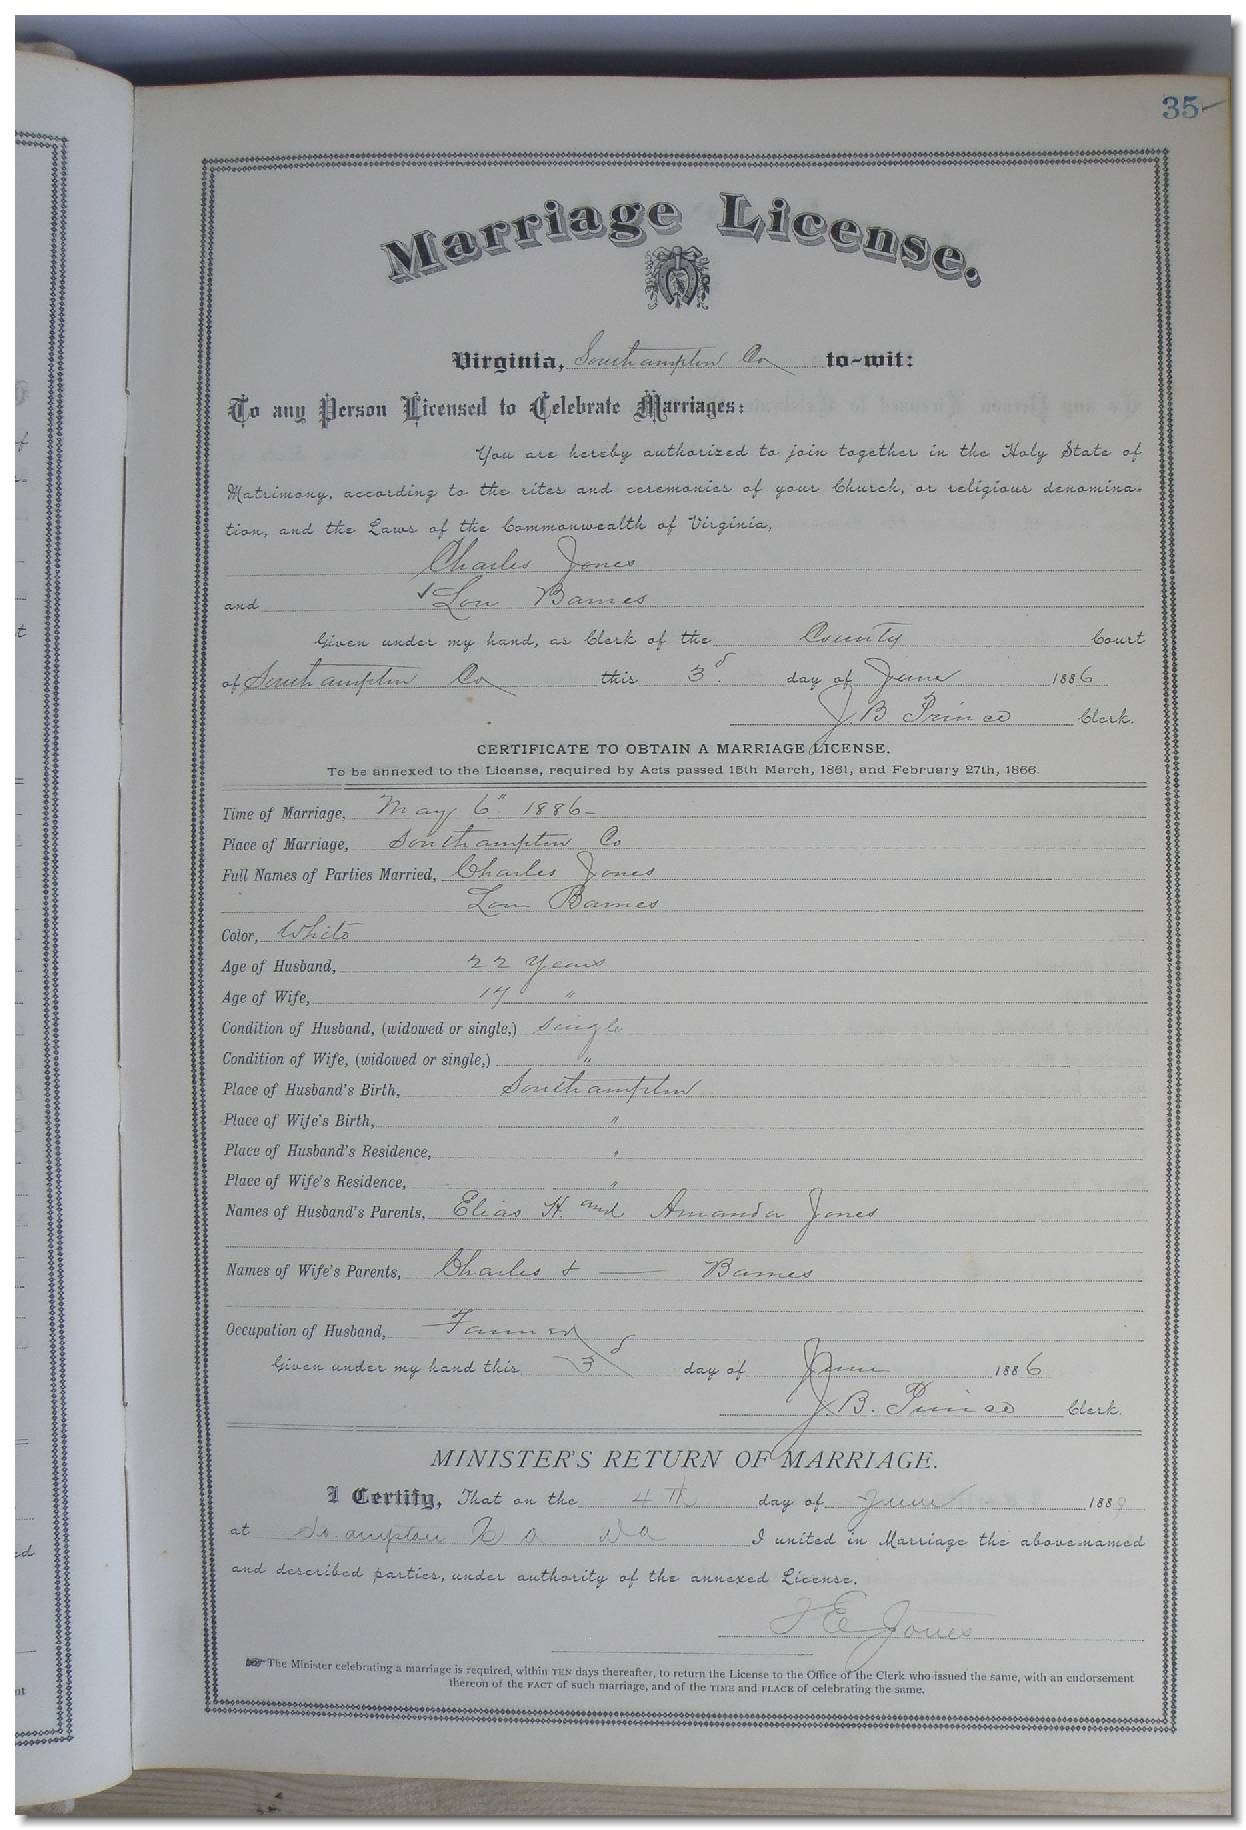 35
Marriage License.
Virginia, Southampton Co to-wit:
To any Person Licensed to Celebrate Marriages:
You are hereby authorized to join together in the Holy State of
Matrimony, according to the rites and ceremonies of your Church, or religious denomina-
tion, and the Laws of the Commonwealth of Virginia,
Charles Jones
and Lou Barnes
Given under my hand, as Clerk of the County Court
of Southampton Co this 3d. day of June 1886
J B Prince Clerk.
CERTIFICATE TO OBTAIN A MARRIAGE LICENSE.
To be annexed to the License, required by Acts passed 15th March, 1861, and February 27th, 1866.
Time of Marriage, May 6" 1886-
Place of Marriage, Southampton Co
Full Names of Parties Married, Charles Jones
Lou Barnes
Color, White
Age of Husband, 22 years
Age of Wife, 17 "
Condition of Husband, (widowed or single,) Single
Condition of Wife, (widowed or single,) "
Place of Husband's Birth, Southampton
Place of Wife's Birth, "
Place of Husband's Residence, "
Place of Wife's Residence, "
Names of Husband's Parents, Elias H. and Amanda Jones
Names of Wife's Parents, Charles & — Barnes
Occupation of Husband, Farmer
Given under my hand this 3d day of June 1886
J. B. Prince Clerk.
MINISTER'S RETURN OF MARRIAGE.
I Certify, That on the 4th day of June 188
at So.ampton Co Va I united in Marriage the above-named
and described parties, under authority of the annexed License.
E Jones
The Minister celebrating a marriage is required, within TEN days thereafter, to return the License to the Office of the Clerk who issued the same, with an endorsement
thereon of the FACT of such marriage, and of the TIME and PLACE of celebrating the same.